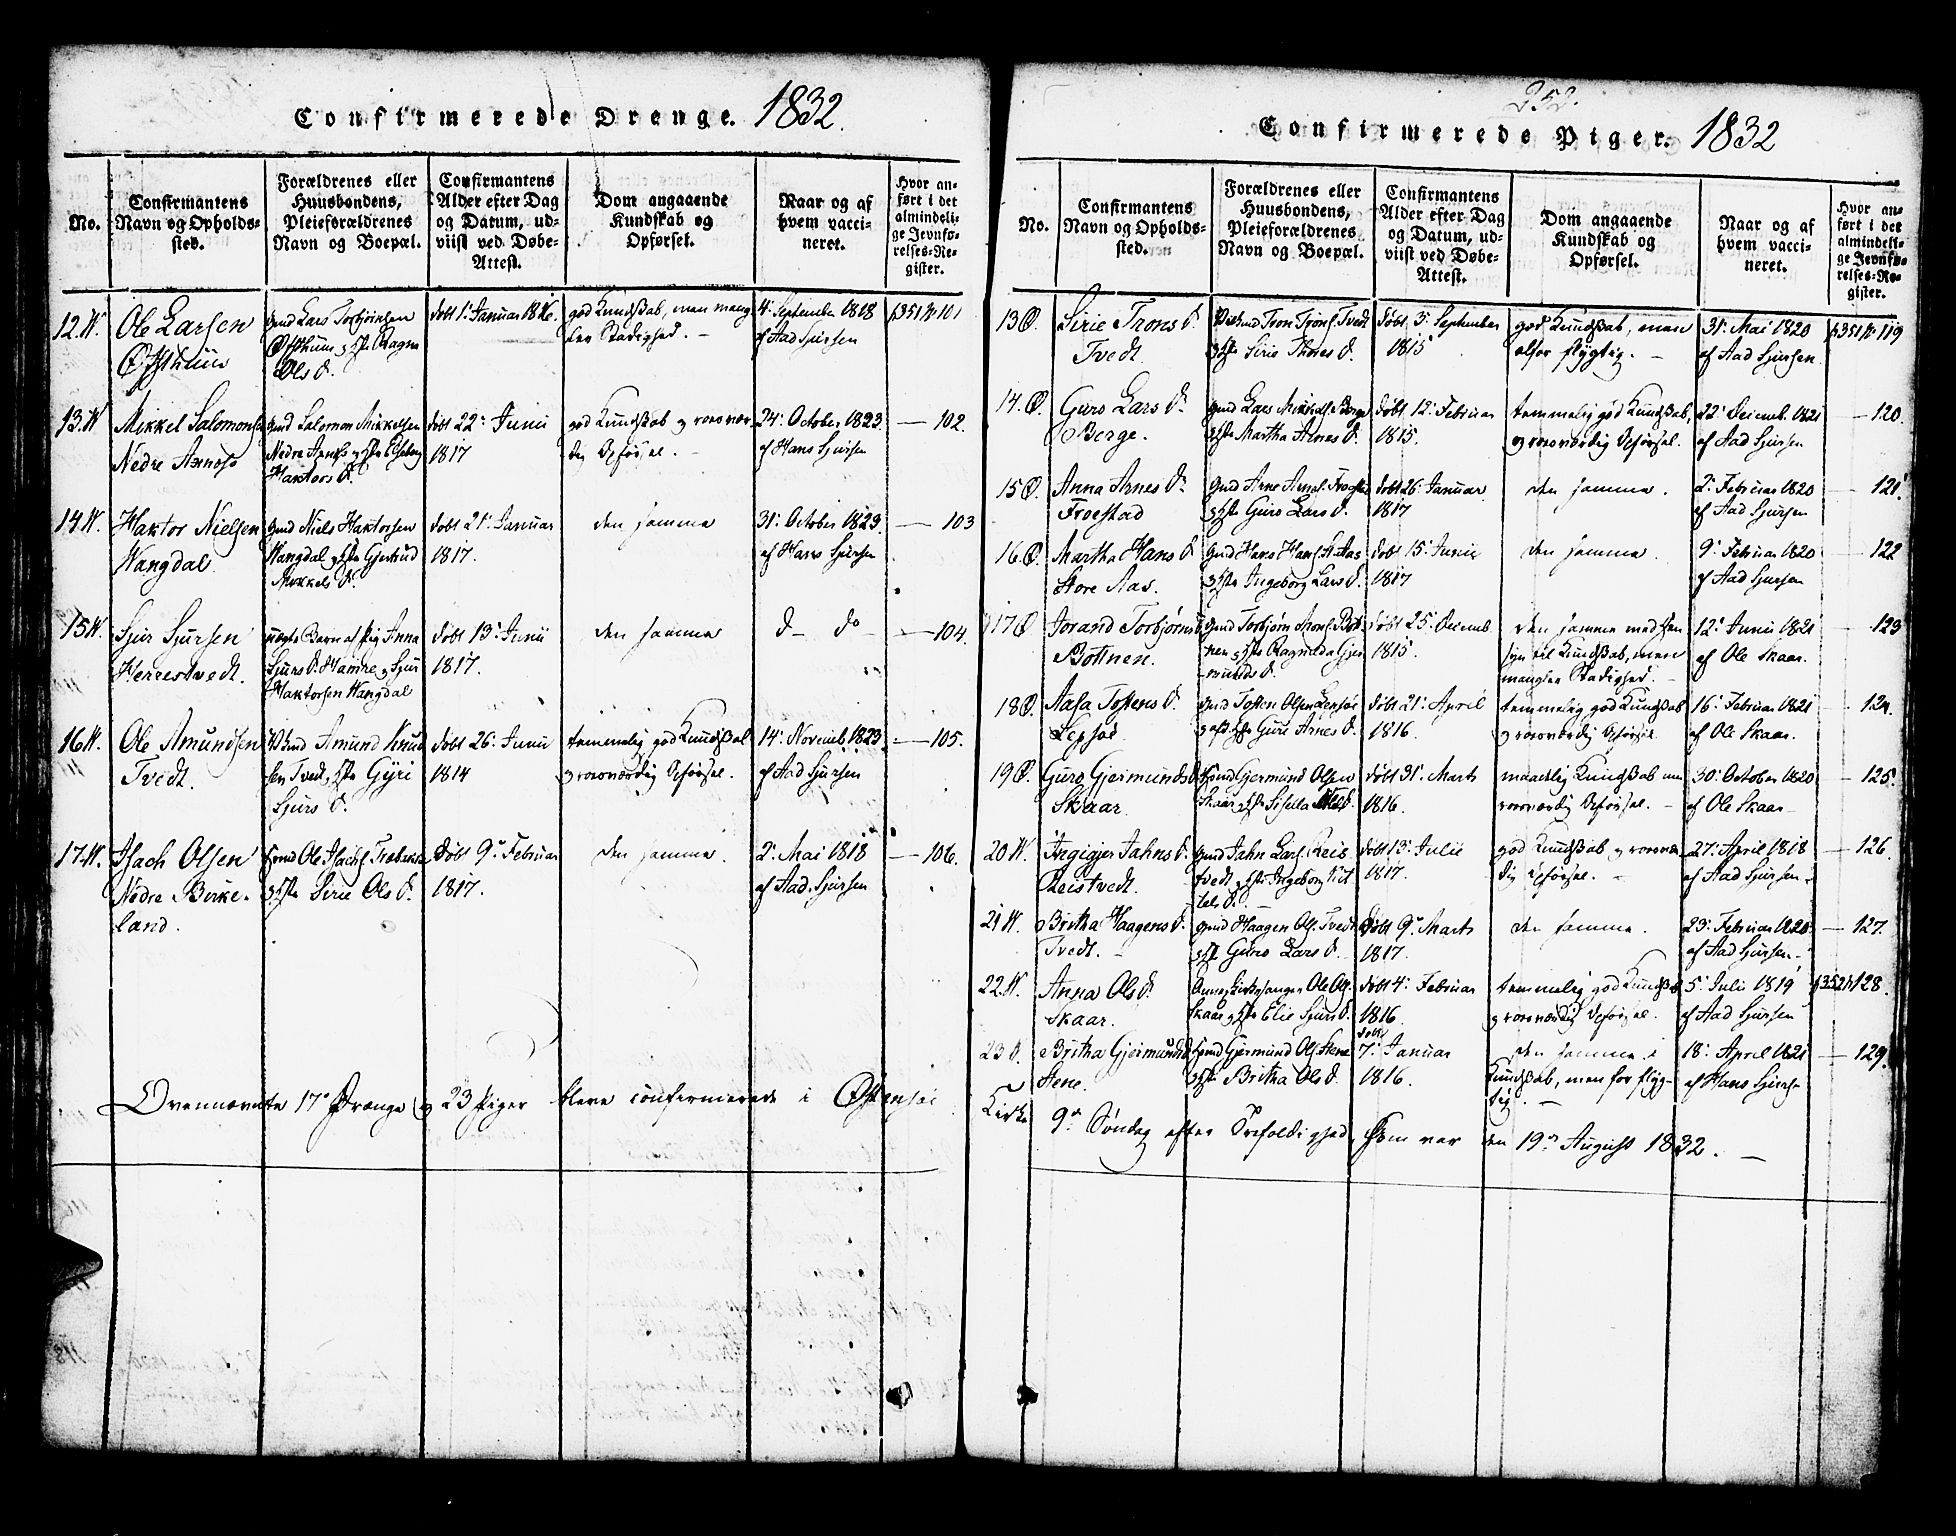 Confirmerede Drenge. 1832.
No.
Confirmantens
Navn og Opholds-
sted.
Forældrenes eller
Huusbondens,
Pleieforældrenes
Navn og Boepæl.
Confirmantens
Alder efter Dag
og Datum, ud-
viist ved Døbe-
Attest.
Dom angaaende
Kundskab og
Opførsel.
Naar og af
hvem vacci-
neret.
Hvor an-
ført i det
almindeli-
ge Jevnfø-
relses-Re-
gister.
12. W.
Ole Larsen
Øfsthuus
Gmd Lars Torbjørnsen
Øfsthuus og Hstr Ragna
Ols D.
døbt 1. Januar 1816.
god Kundskab, men mang-
ler Stadighed. -
4. September 1818
af Aad Sjursen
p 351 N 101
13. W
Mikkel Salomons
Nedre Axnøs
Gmd Salomon Mikkelsen
Haktors D.
døbt 22. Junii
1817
god Kundskab og roesvær-
dig Opførsel. -
24. October 1823.
af Hans Sjursen
— 102.
14. W.
Haktor Nielsen
Wangdal
Gmd Niels Haktorsen
Wangdal og Hstr Gjertrud
Mikkels D.
døbt 21. Januar
1817.
den samme
31. October 1823.
af Hans Sjursen
— 103
15 W.
Sjur Sjursen
Herrestvedt.
uægte Barn af Pig Anna
Sjurs D. Hamre og Sjur
Haktorsen Wangdal
døbt 13. Junii
1817.
den samme
d- do
— 104.
16 W.
Ole Amundsen
Tvedt.
Amund Knud
sen Tvedt, Hstr Gyri
Sjurs D.
døbt 26. Junii
1814
temmelig god Kundskab
og roesværdig Opførsel.
14. Novemb. 1823.
af Aad Sjursen
— 105.
17. W.
Isach Olsen
Nedre Birke-
land.
og Hstr Sirie Ols D.
Døbt 9. Februar
1817.
den samme.
2. Mai 1818
af Aad. Sjursen
— 106.
Ovennævnte 17 Drenge og 23 Piger bleve confirmerede i Østensøe
252.
Confirmerede Piger. 1832
No.
Confirmantens
Navn og Opholds-
sted.
Forældrenes eller
Huusbondens,
Pleieforældrenes
Navn og Boepæl.
Confirmantens
Alder efter Dag
og Datum, ud-
viist ved Døbe-
Attest.
Dom angaaende
Kundskab og
Opførsel.
Naar og af
hvem vacci-
neret.
Hvor an-
ført i det
almindeli-
ge Jevnfø-
relses-Re-
gister.
13 Ø.
Sirie Trons D.
Tvedt.
Tron Trons. Tvedt
og Hstr Siri Thores D.
døbt 3. September
1815
god Kundskab, men
alfor flygtig. -
31. Mai 1820
af Aad Sjursen.
p 351 N 119
14. Ø.
Guro Lars D.
Berge.
Gmd Lars Mikkels. Berge
og Hstr Martha Arnes D.
døbt 12. Februar
1815.
temmelig god Kundskab,
og roesværdig Opførsel.
22. Decemb. 1821
af Aad Sjursen
— 120.
15 Ø.
Anna Arnes D.
Froestad
Gmd Arne Arnes. Froestad
og Hstr Guro Lars D.
døbt 26. Januar
1817
den samme.
2. Februar 1820
af Aad Sjursen
— 121.
16 Ø.
Martha Hans D
Store Aas.
Gmd Hans Hans. St. Aas
og Hstr Ingeborg Lars D.
døbt 15. Junii
1817
den samme.
9. Februar 1820
af Aad Sjursen
— 122
17 Ø
Jorand Torbjørns
Bottnen.
Gmd Torbjørn Mons. Bott-
nen og Hstr Ragnilda Gjer
munds D.
døbt 25. Decemb
1815.
den samme med Hen
syn til Kundskab, men
mangler Stadighed. -
12. Junii 1821
af Ole Skaar.
— 123
18 Ø.
Aasa Tostens D.
Lepsøe
Gmd Tosten Olsen Lepsøe
og Hstr Guro Arnes D.
døbt 21. April
1816.
temmelig god Kundskab
og roesværdig Opførsel
16. Februar 1821
af Ole Skaar.
— 124.
19 Ø.
Guro Gjermunds D
Skaar.
Gmd Gjermund Olsen
døbt 31. Marts
1816.
maadelig Kundskab men
roesværdig Opførsel. -
30. October 1820
af Ole Skaar
— 125.
20 W.
Argigjer Jahns D.
Reistvedt.
Gmd Jahn Lars. Reis
tvedt og Hstr Ingeborg Kit
tels D. -
døbt 13. Julii
1817.
god Kundskab og roesvær
dig Opførsel. -
27. April 1818
af Aad Sjursen
— 126.
21 W.
Britha Haagens D.
Tvedt. -
Gmd Haagen Ols. Tvedt
og Hstr Guro Lars D.
Døbt 9. Marts
1817.
den samme.
23. Februar 1820.
af Aad Sjursen
— 127.
22 W.
Anna Ols D.
Skaar.
Kirkesanger Ole Ols.
Skaar og Hstr Elie Sjurs D.
døbt 4. Februar
1816.
temmelig god Kundskab
og roesværdig Opførsel.
5. Julii 1819
af Aad Sjursen
p 352 N 128.
23 Ø.
Britha Gjermunds D
Stene.
Gmd Gjermund Ols. Stene
og Hstr Britha Ols D.
døbt
7. Januar
1816.
den samme i
Kundskab, men for flyg-
tig. -
18. April 1821
af Hans Sjursen
— 129.
Kirke 9de Søndag efter Trefoldighed, som var den 19de August 1832. —